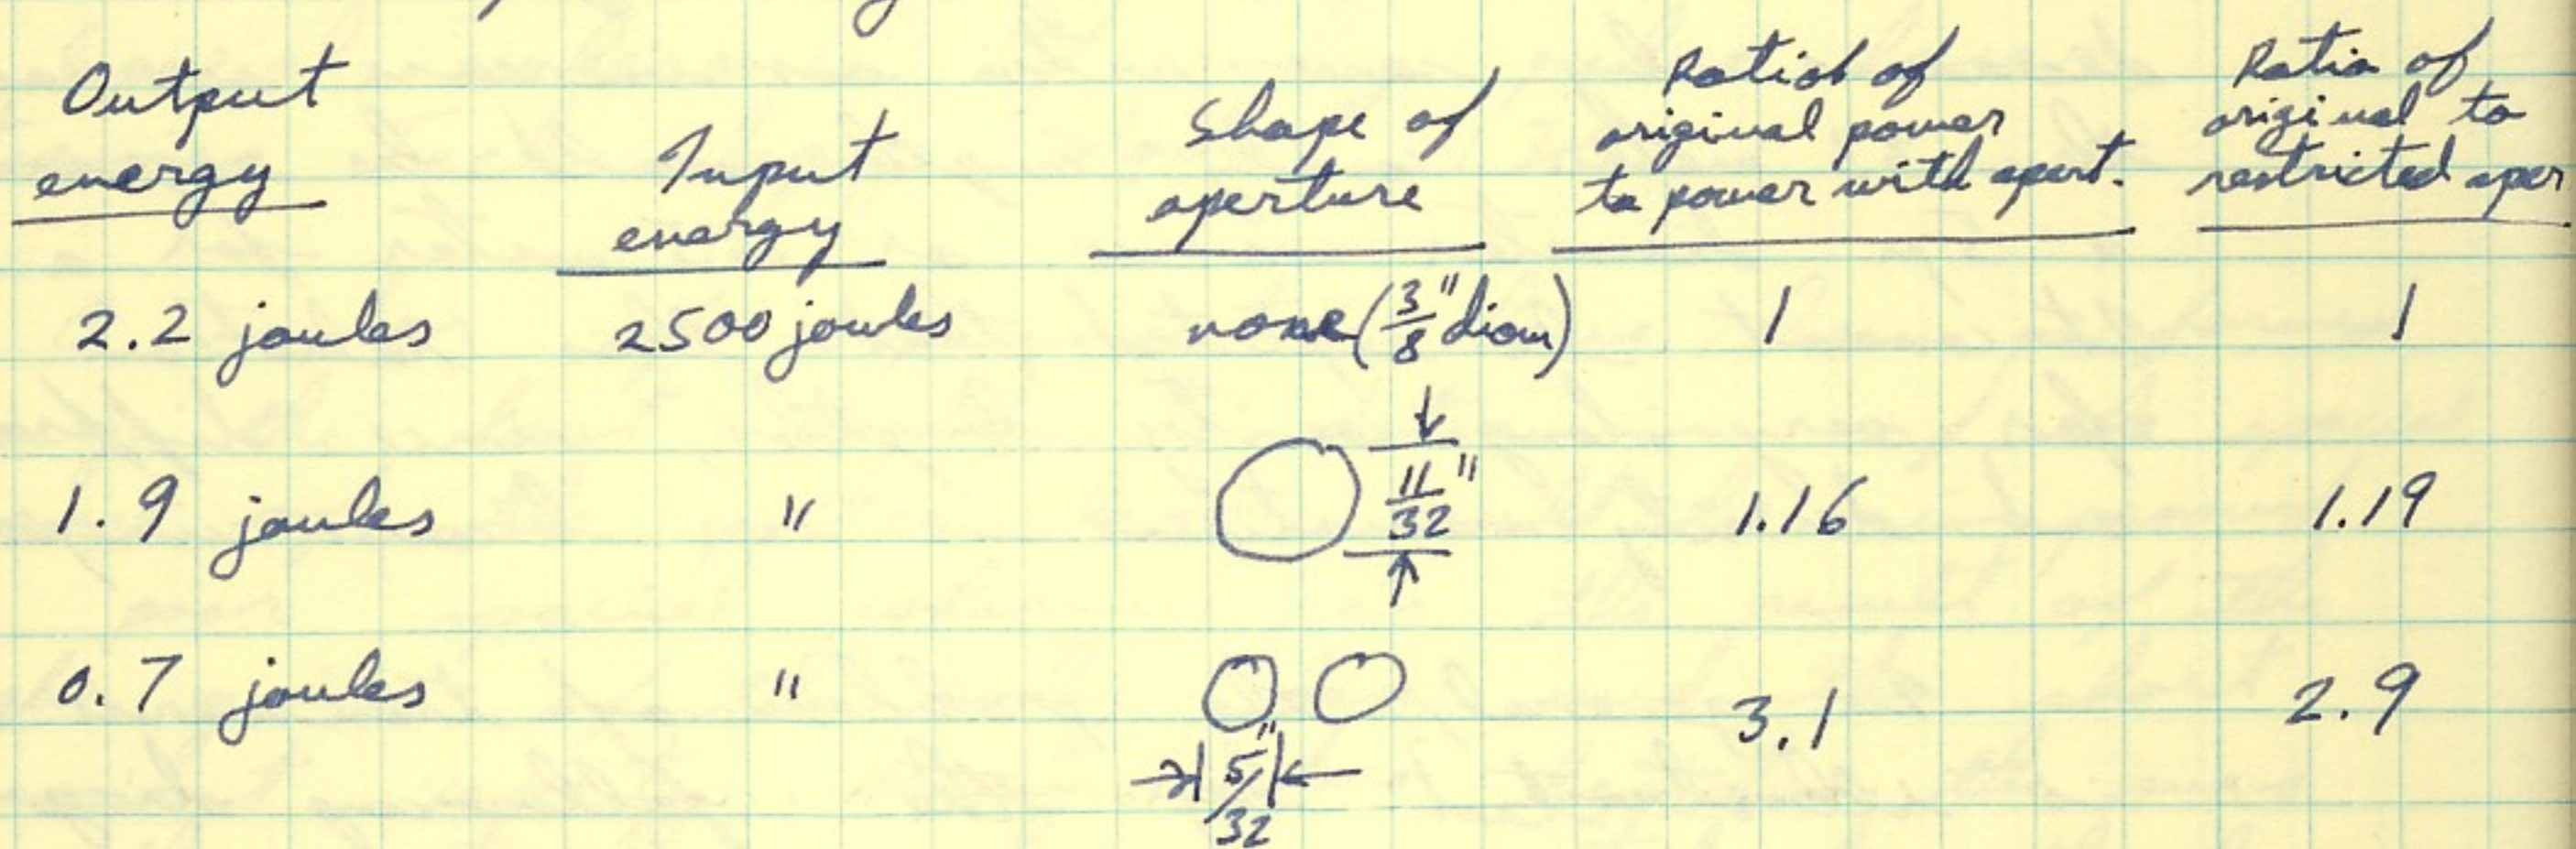 Output
energy
Input
energy
Shape of
aperture
Ratio of
original power
to power with apert.
Ratio of
original to
restricted aper
2.2 joules 2500 joules none (3/8" diam) 1 1
1.9 joules " 11/32" 1.16 1.19
0.7 joules " 5/32" 3.1 2.9